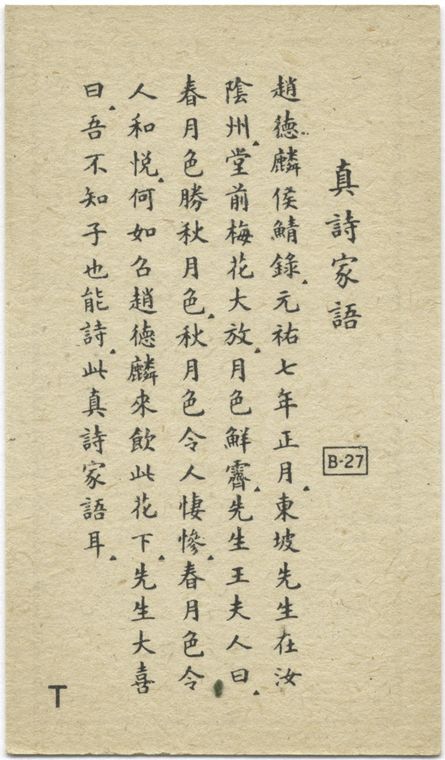 真詩家語
B-27
趙德麟侯鯖錄.元祐七年正月.東坡先生在汝
陰州.堂前梅花大放.月色鮮霽.先生王夫人曰.
春月色勝秋月色.秋月色令人悽慘.春月色令
人和悅.何如召趙德麟來飲此花下.先生大喜
曰.吾不知子也能詩.此真詩家語耳.
T